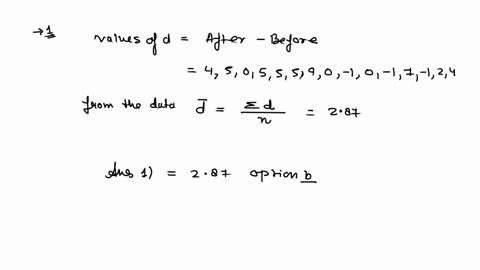 → 1 values of d = After - Before
= 4, 5, 0, 5, 5, 5, 9, 0, -1, 0, -1, 7, -1, 2, 4
from the data d̄ = Σd / n = 2.87
Ans 1) = 2.87 option b